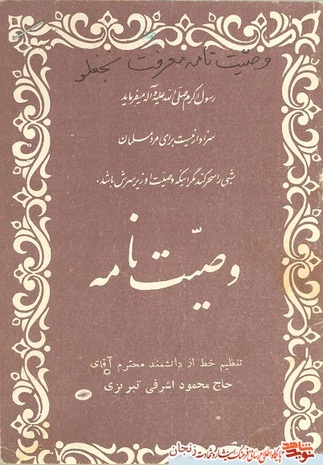 وصیّت نامه معرفت
رسول اکرم صلّی الله علیه و آله میفرماید
سزاوار نیست برای مرد مسلمان
شبی را سحر کند مگر اینکه وصیّت او زیر سرش باشد.
وصیّت نامه
تنظیم خط از دانشمند محترم آقای
حاج محمود اشرفی تبریزی
نوید شاهد
زنجان